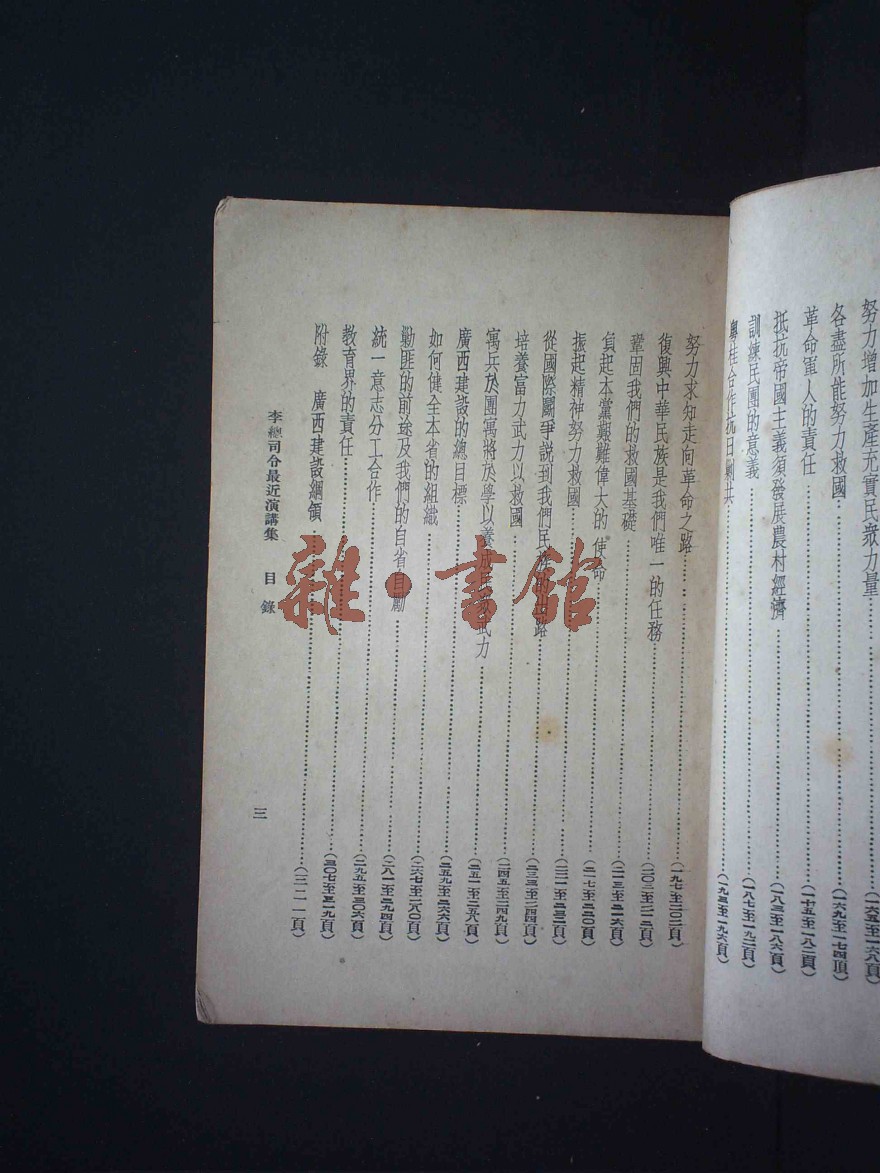 努力增加生產充實民眾力量……(一六五至一六八頁)
各盡所能努力救國……(一六九至一七四頂)
革命軍人的責任……(一十五至一八二頁)
抵抗帝國主義須發展農村經濟……(一八三至一八六頁)
訓練民團的意義……(一八七至一九二頁)
粵桂合作抗日剿共……(一九三至一九六頁)
努力求知走向革命之路……(一九七至二〇二頁)
復興中華民族是我們唯一的任務……(二〇三至二一二頁)
鞏固我們的救國基礎……(二一三至二一六頁)
負起本黨艱難偉大的使命……(二一七至二二〇頁)
振起精神努力救國……(二二一至二三二頁)
從國際鬭爭說到我們民族的出路……(二三三至二四四頁)
培養富力武力以救國……(二四五至二四九頁)
寓兵於團寓將於學以養成民眾武力……(二五一至二五八頁)
廣西建設的總目標……(二五九至二六六頁)
如何健全本省的組織……(二六七至二八〇頁)
勦匪的前途及我們的自省自勵……(二八一至二九四頁)
統一意志分工合作……(二九五至三〇六頁)
教育界的責任……(三〇七至三一九頁)
附錄　廣西建設綱領……(三二一頁)
李總司令最近演講集　目錄
三
雜·書館